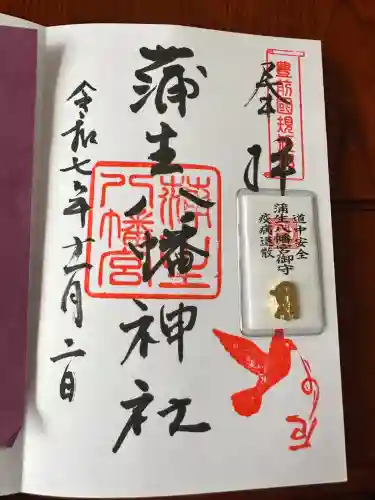 奉拝
蒲生八幡神社
令和七年十一月二日
道中安全
蒲生八幡宮御守
疫病退散
蒲生八幡宮